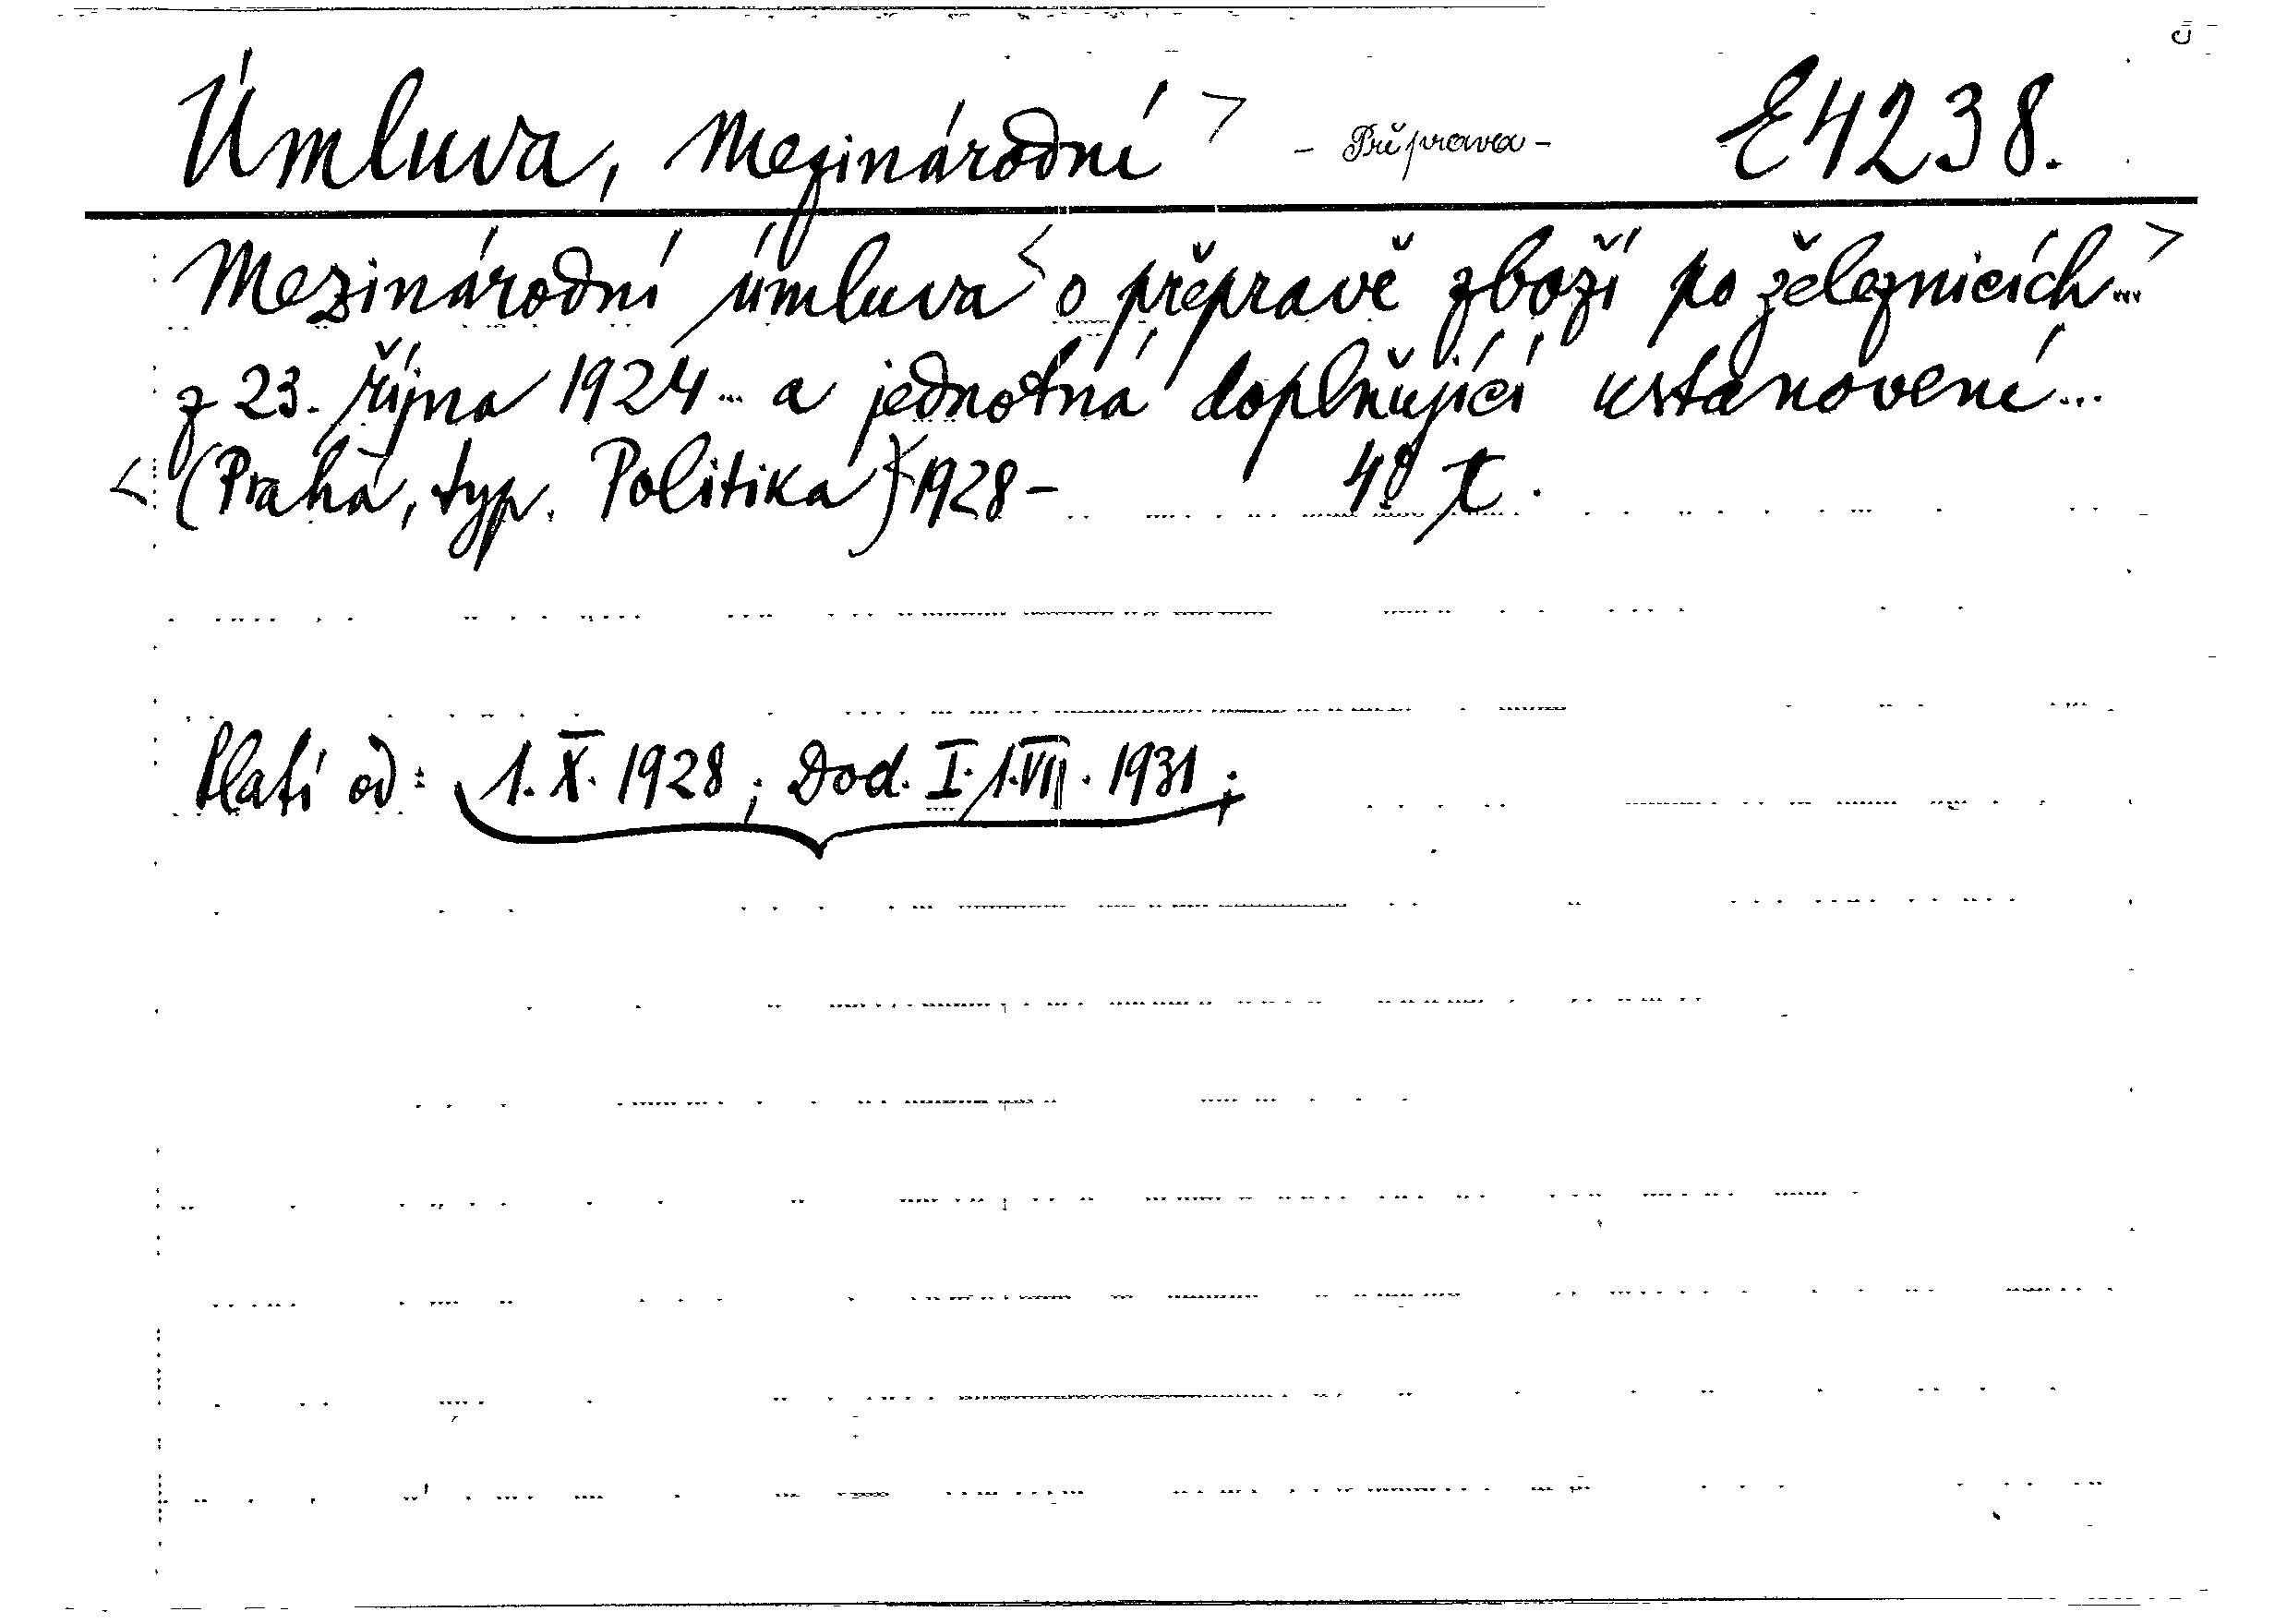 Úmluva, Mezinárodní > - Přeprava - E 4238.
Mezinárodní úmluva < o přepravě zboží po železnicích... >
z 23. října 1924... a jednotná doplňující ustanovení...
< (Praha, typ. Politika) 1928 - 4°
Platí od: 1. X. 1928; Dod. I. 1. VII. 1931;